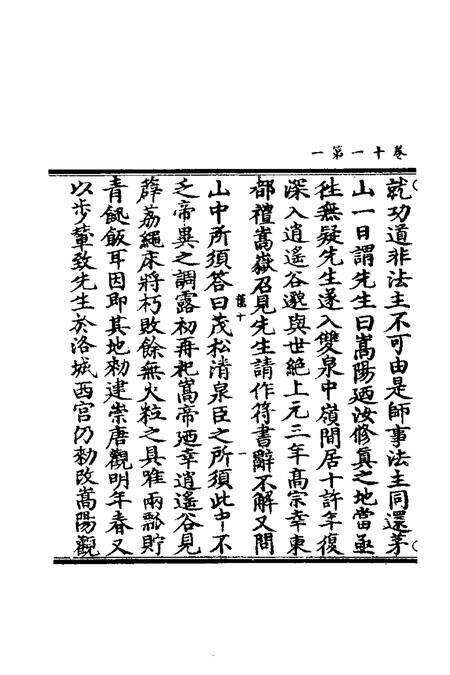 卷十一第一
就功道非法主不可由是師事法主同還茅
山一日謂先生曰嵩陽廼汝修真之地當亟
往無疑先生遂入雙泉中嶺間居十許年復
深入逍遙谷邈與世絶上元三年高宗幸東
都禮嵩嶽召見先生請作符書辭不解又問
山中所須答曰茂松清泉臣之所須此中不
乏帝異之調露初再祀嵩帝廼幸逍遙谷見
薜荔繩床將朽敗餘無火粒之具唯兩瓢貯
青飿飯耳因即其地勑建崇唐觀明年春又
以步輦致先生於洛城西宫仍勑改嵩陽觀